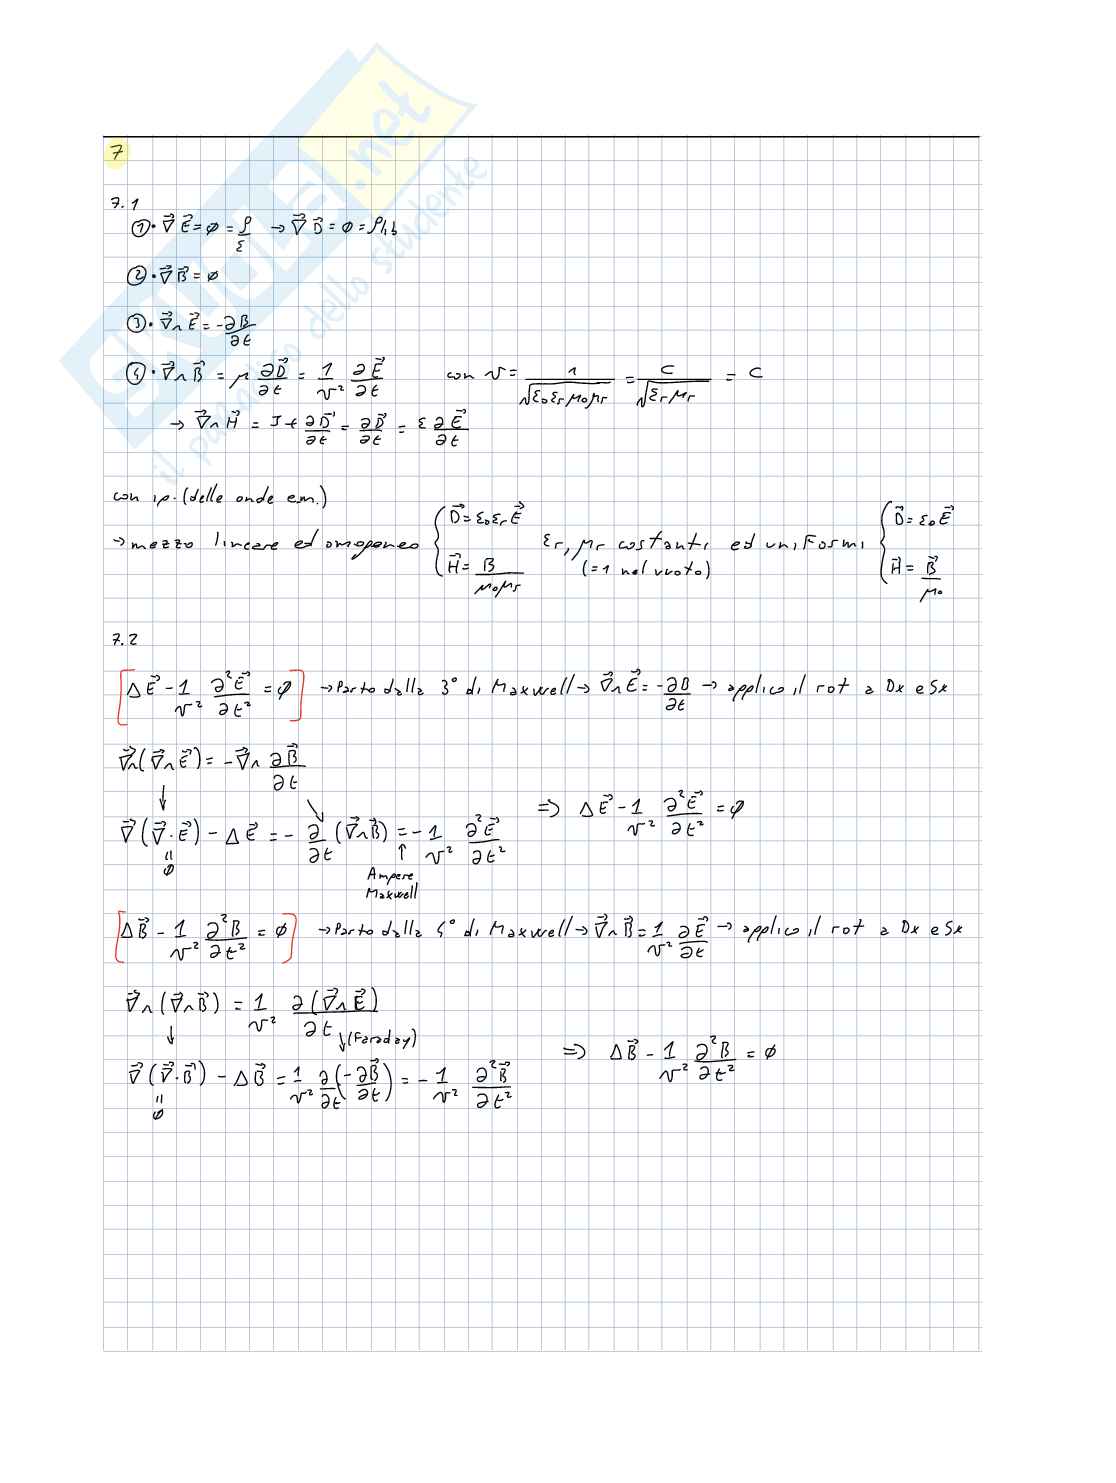 SKUOLA.net
il paradiso dello studente
7
7.1
① · ∇⃗ E⃗ = ∅ = ρ/ε → ∇⃗ D⃗ = ∅ = ρlib
② · ∇⃗ B⃗ = ∅
③ · ∇⃗ ∧ E⃗ = -∂B/∂t
④ · ∇⃗ ∧ B⃗ = μ ∂D⃗/∂t = 1/v² ∂E⃗/∂t con v = 1/√(ε₀εᵣμ₀μᵣ) = c/√(εᵣμᵣ) = c
→ ∇⃗ ∧ H⃗ = J + ∂D⃗/∂t = ∂D⃗/∂t = ε ∂E⃗/∂t
con ip. (delle onde e.m.)
→ mezzo lineare ed omogeneo { D⃗ = ε₀εᵣE⃗ H⃗ = B/μ₀μᵣ εᵣ, μᵣ costanti ed uniformi { D⃗ = ε₀E⃗ H⃗ = B⃗/μ₀
(=1 nel vuoto)
7.2
[ΔE⃗ - 1/v² ∂²E⃗/∂t² = ∅] → Parto dalla 3° di Maxwell → ∇⃗ ∧ E⃗ = -∂B/∂t → applico il rot a Dx e Sx
∇⃗ ∧ (∇⃗ ∧ E⃗) = -∇⃗ ∧ ∂B⃗/∂t
∇⃗ (∇⃗ · E⃗) - ΔE⃗ = - ∂/∂t (∇⃗ ∧ B⃗) = - 1/v² ∂²E⃗/∂t² ⇒ ΔE⃗ - 1/v² ∂²E⃗/∂t² = ∅
=
∅
↑
Ampere
Maxwell
[ΔB⃗ - 1/v² ∂²B/∂t² = ∅] → Parto dalla 4° di Maxwell → ∇⃗ ∧ B⃗ = 1/v² ∂E⃗/∂t → applico il rot a Dx e Sx
∇⃗ ∧ (∇⃗ ∧ B⃗) = 1/v² ∂(∇⃗ ∧ E⃗)/∂t
↓ ↓ (Faraday)
∇⃗ (∇⃗ · B⃗) - ΔB⃗ = 1/v² ∂/∂t (-∂B⃗/∂t) = - 1/v² ∂²B⃗/∂t² ⇒ ΔB⃗ - 1/v² ∂²B/∂t² = ∅
=
∅